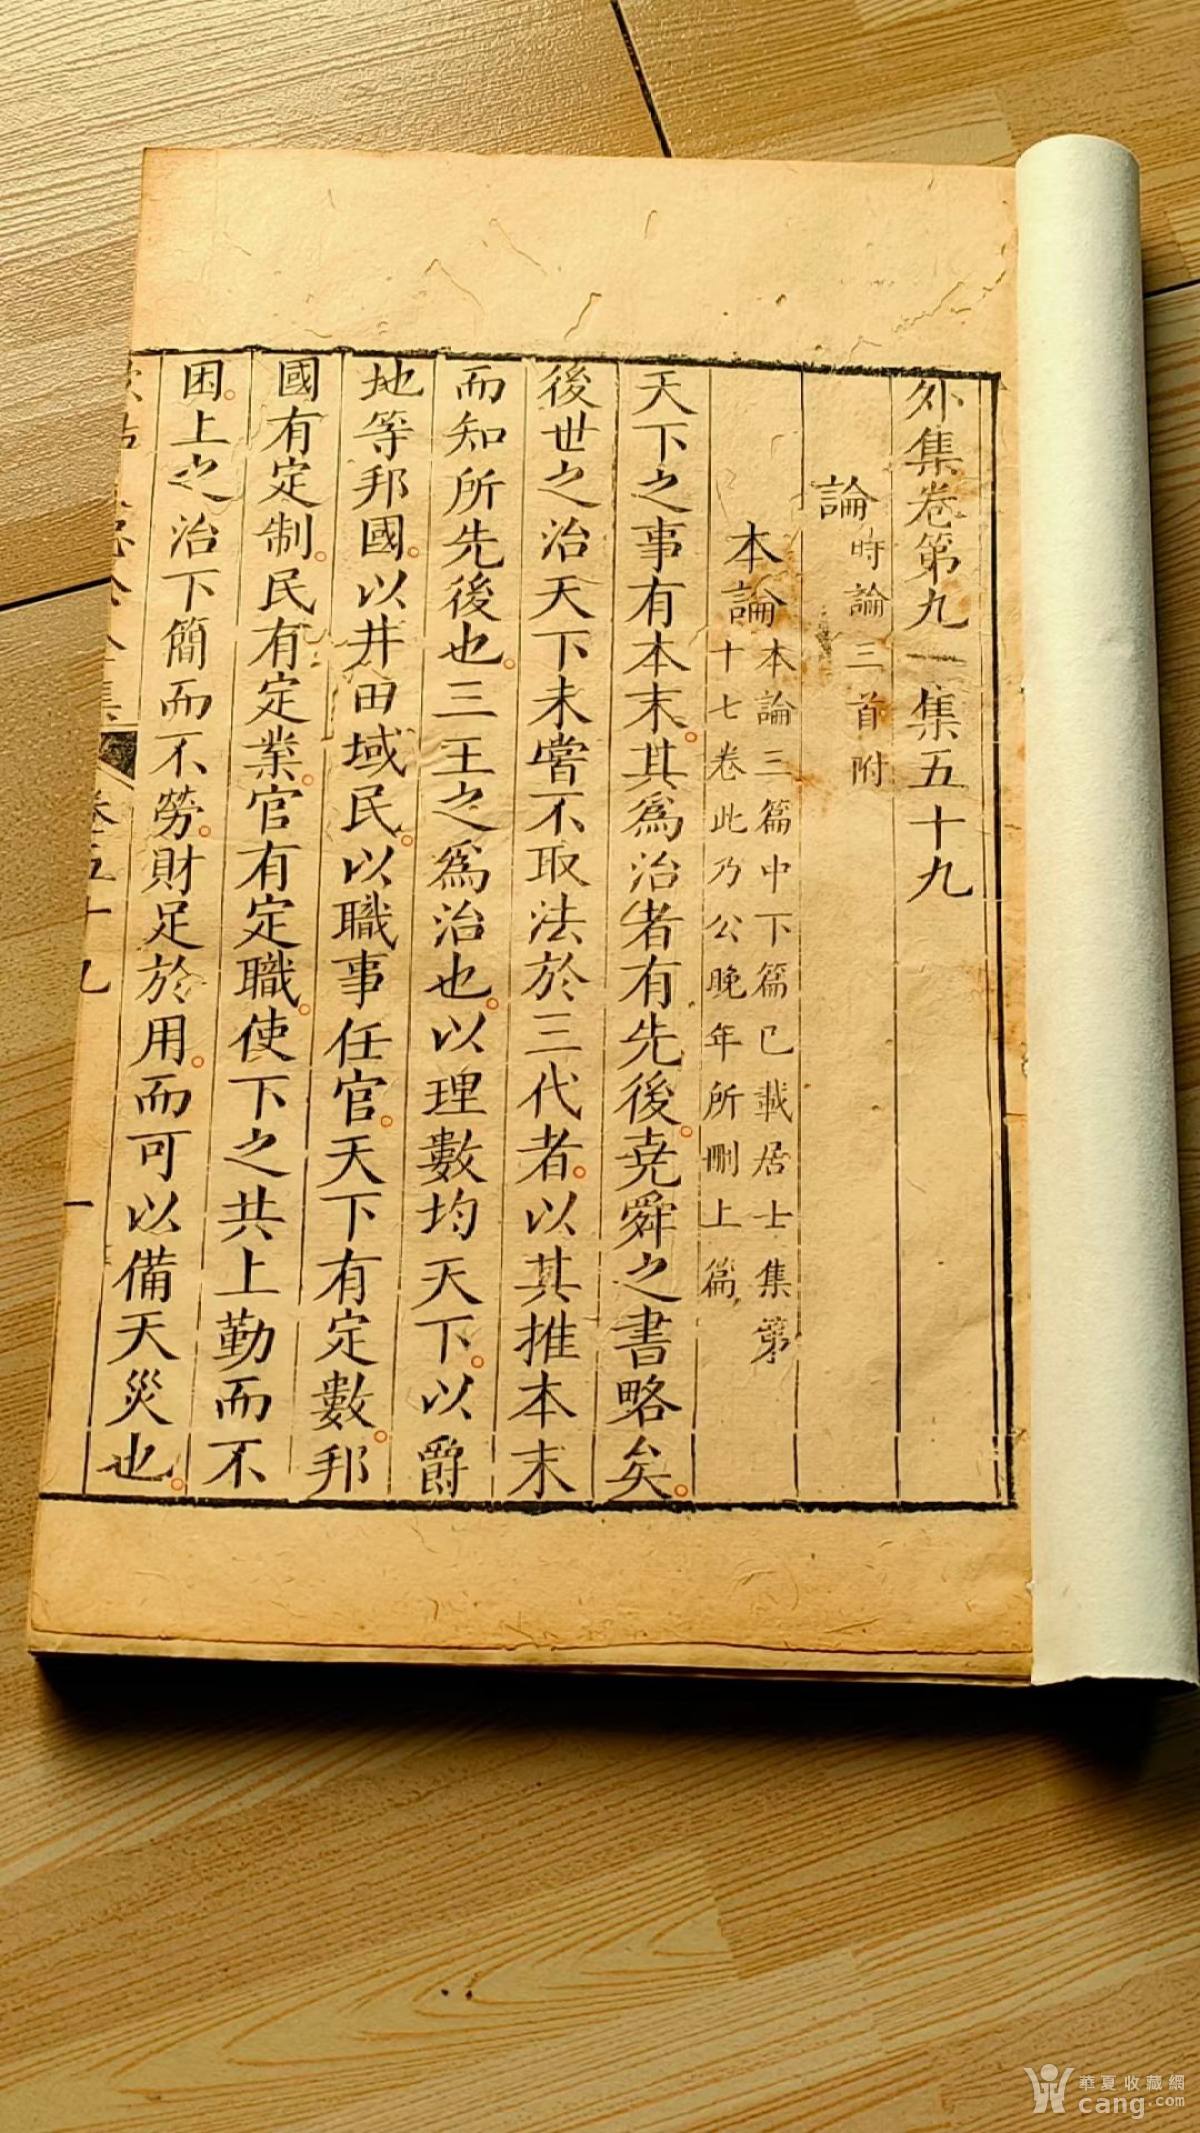 外集卷第九　集五十九
論時論三首附
本論本論三篇中下篇已載居士集第
十七卷此乃公晚年所刪上篇
天下之事有本末。其爲治者有先後。堯舜之書略矣。
後世之治天下未嘗不取法於三代者。以其推本末
而知所先後也。三王之爲治也。以理數均天下。以爵
地等邦國。以井田域民。以職事任官。天下有定數。邦
國有定制。民有定業。官有定職。使下之共上勤而不
困。上之治下簡而不勞。財足於用。而可以備天災也。
卷五十九
一
華夏收藏網
cang.com